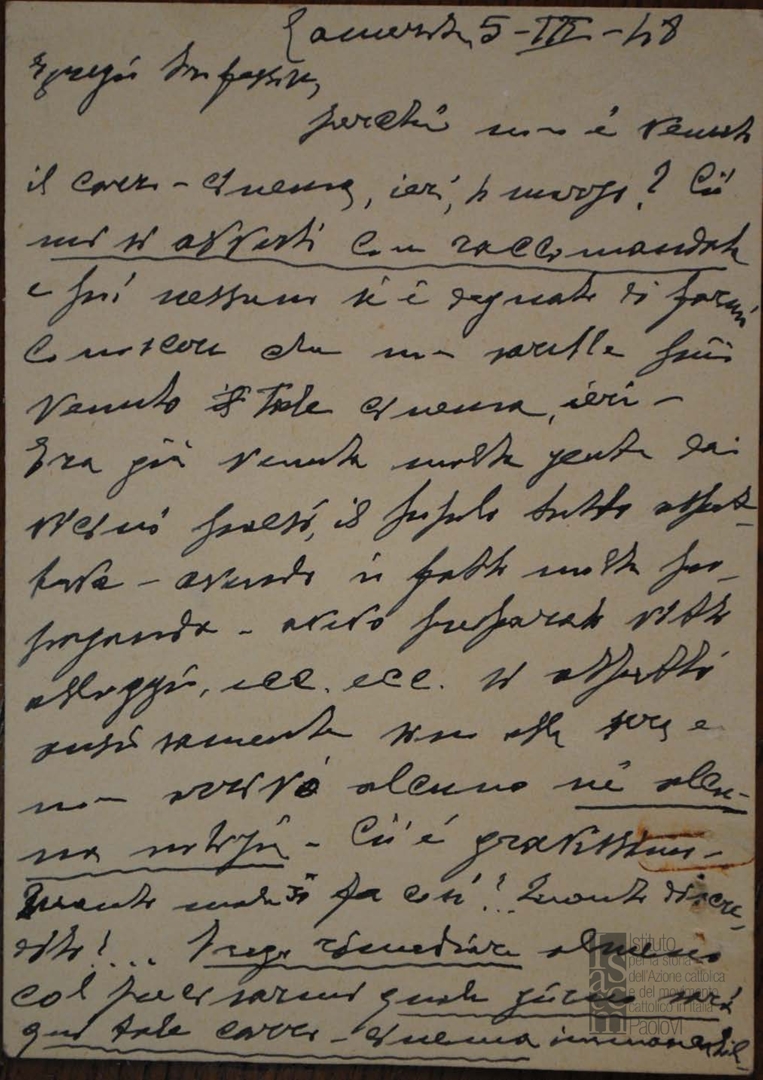 5-III-48
Egregio Professore,
perché non è venuto
il carro-cinema, ieri, 4 marzo? Ciò
mi si avvertì con raccomandata
e poi nessuno si è degnato di farmi
conoscere che non sarebbe più
venuto il tale cinema, ieri -
Era già venuta molta gente dai
vicini paesi, il popolo tutto aspet-
tava - avendo io fatto molta pro-
paganda - avevo preparato vitto
alloggio, ecc. ecc. si aspettò
ansiosamente sino alla sera e
non arrivò alcuno né alcu-
na notizia - Ciò è gravissimo -
Quanto male si fa così! Quanto discre-
dito!... Prego rimediare almeno
col precisarmi quale giorno sarà
qui tale carro-cinema
Istituto
per la storia
dell'Azione cattolica
e del movimento
cattolico in Italia
Paolo VI